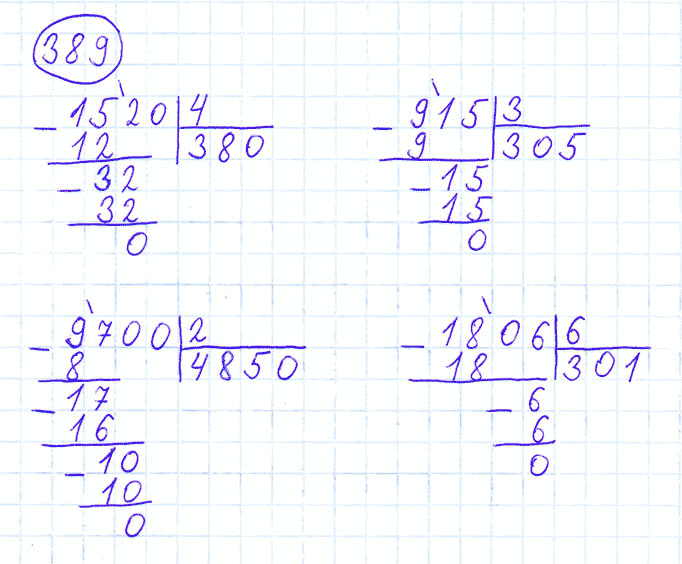 389
1520 | 4
12 | 380
32
32
0
915 | 3
9 | 305
15
15
0
9700 | 2
8 | 4850
17
16
10
10
0
1806 | 6
18 | 301
6
6
0